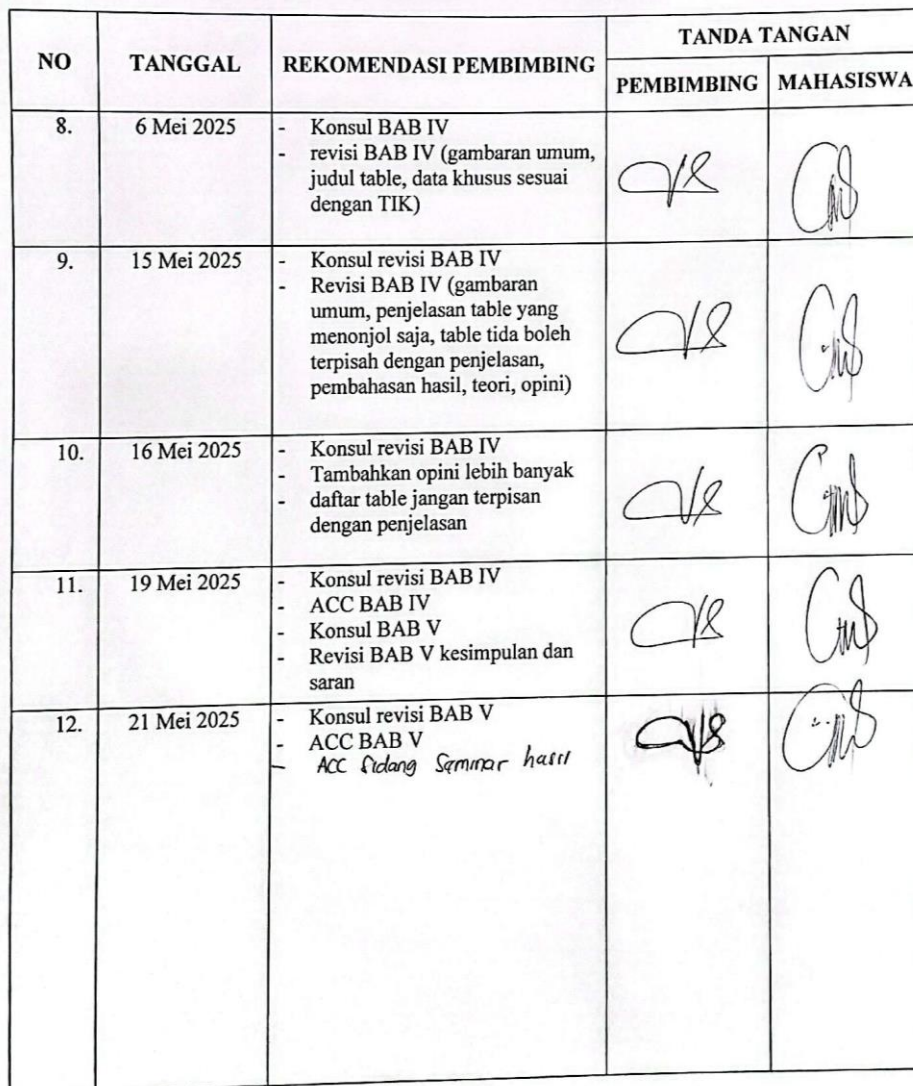 NO TANGGAL REKOMENDASI PEMBIMBING TANDA TANGAN
PEMBIMBING MAHASISWA
8. 6 Mei 2025 - Konsul BAB IV
- revisi BAB IV (gambaran umum,
judul table, data khusus sesuai
dengan TIK)
9. 15 Mei 2025 - Konsul revisi BAB IV
- Revisi BAB IV (gambaran
umum, penjelasan table yang
menonjol saja, table tida boleh
terpisah dengan penjelasan,
pembahasan hasil, teori, opini)
10. 16 Mei 2025 - Konsul revisi BAB IV
- Tambahkan opini lebih banyak
- daftar table jangan terpisan
dengan penjelasan
11. 19 Mei 2025 - Konsul revisi BAB IV
- ACC BAB IV
- Konsul BAB V
- Revisi BAB V kesimpulan dan
saran
12. 21 Mei 2025 - Konsul revisi BAB V
- ACC BAB V
- ACC Sidang Seminar hasil